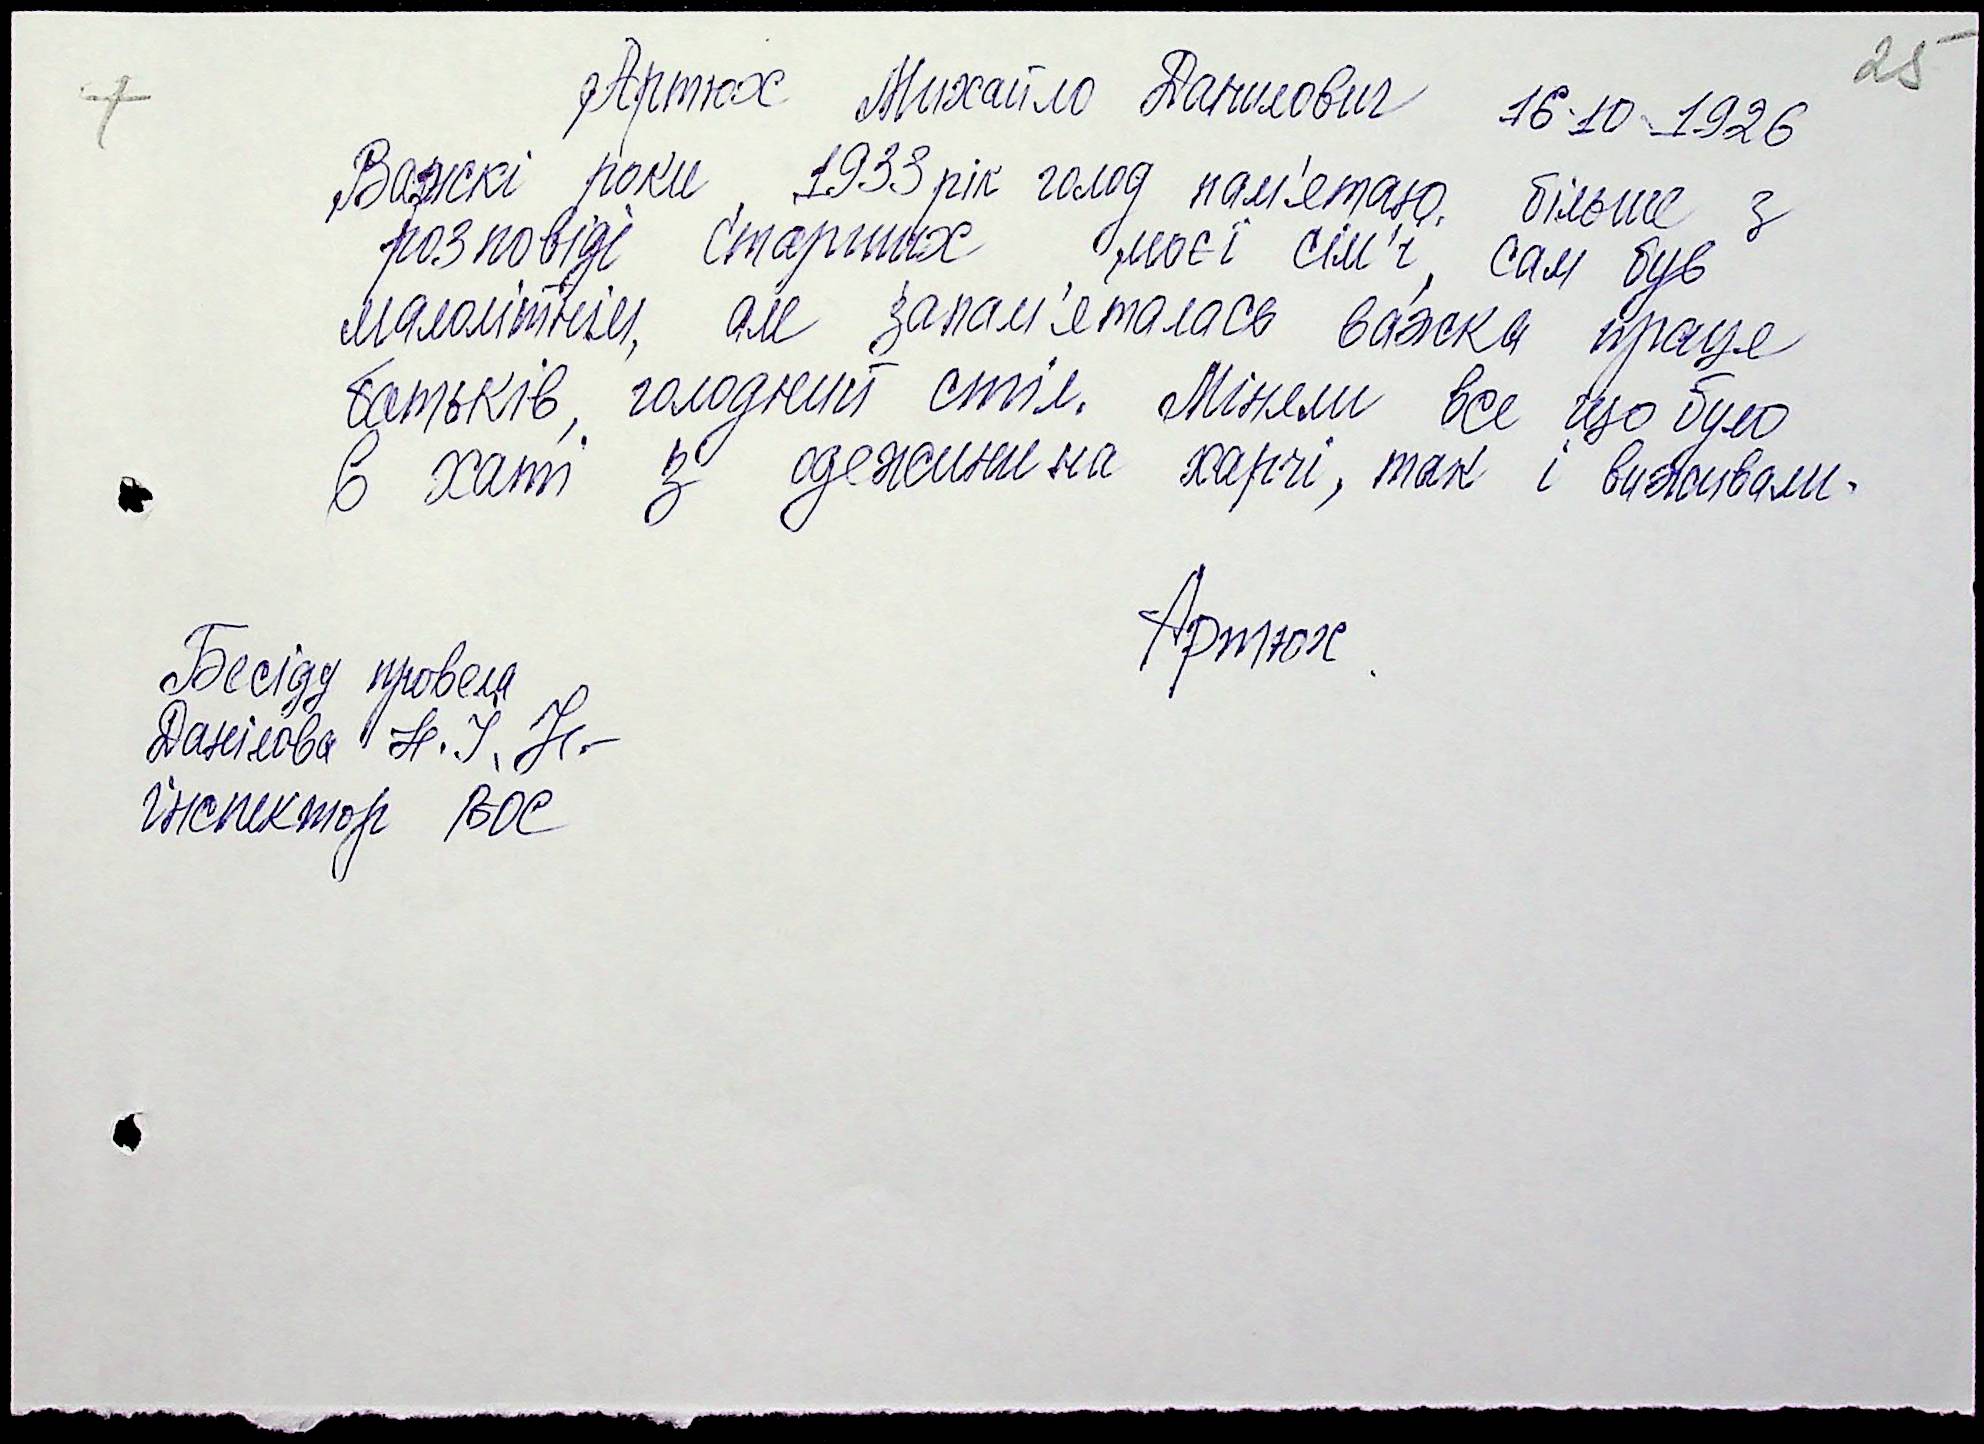 25
Артюх Михайло Данилович 16.10.1926
Важкі роки, 1933 рік голод пам'ятаю, більше з
розповіді старших моєї сім'ї, сам був
малолітнім, але запам'яталась важка праця
батьків, голодний стіл. Міняли все що було
в хаті з одежини на харчі, так і виживали.
Артюх.
Бесіду провела
Данілова Н.І.
інспектор ВОС